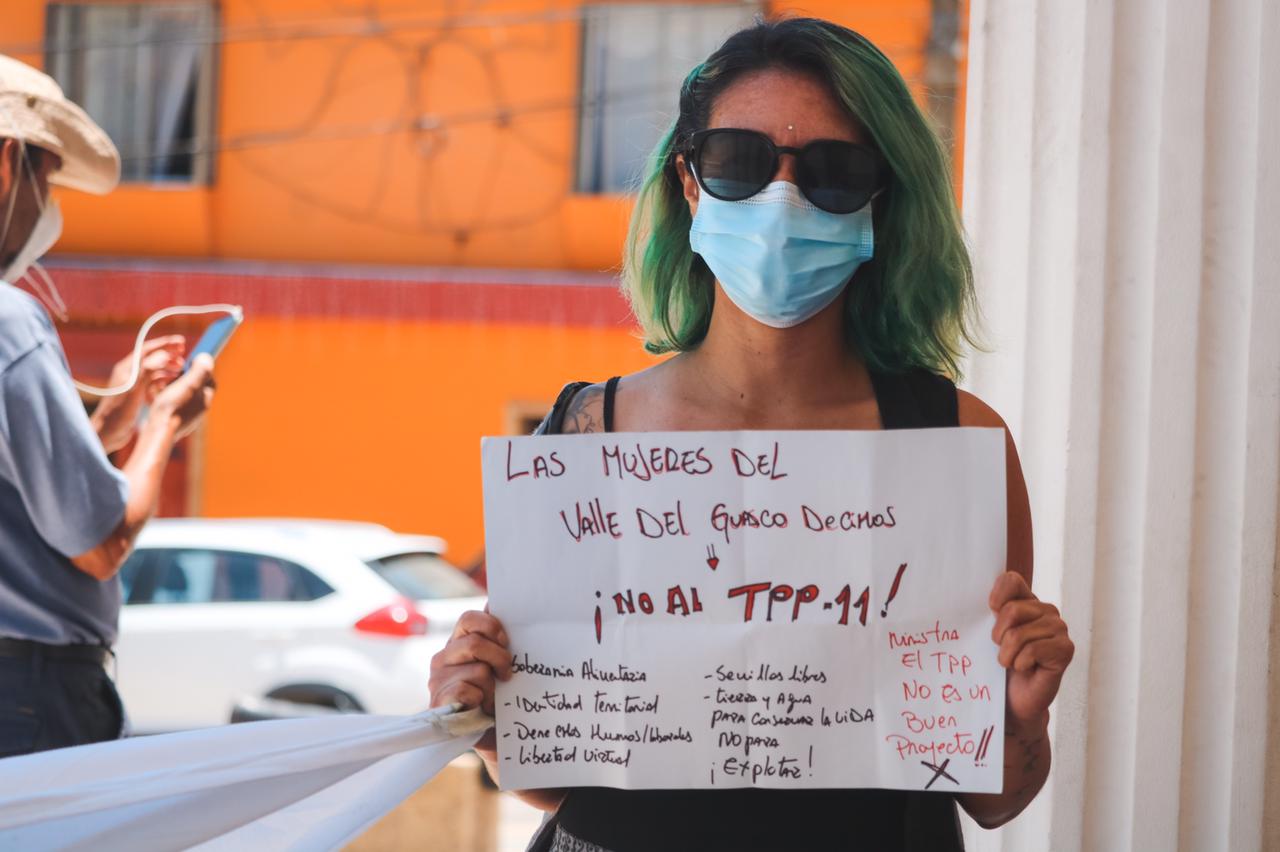 LAS MUJERES DEL
VALLE DEL GUASCO DECIMOS
¡NO AL TPP-11!
Soberania Alimentaria
- IDentidad Territorial
- Derechos Humos/laborales
- Libertad Virtual
- Semillas libres
- tierra y Agua
PARA Conservar la VIDA
NO PARA
¡Explotar!
Ministra
El TPP
No es un
Buen
Proyecto!!
X